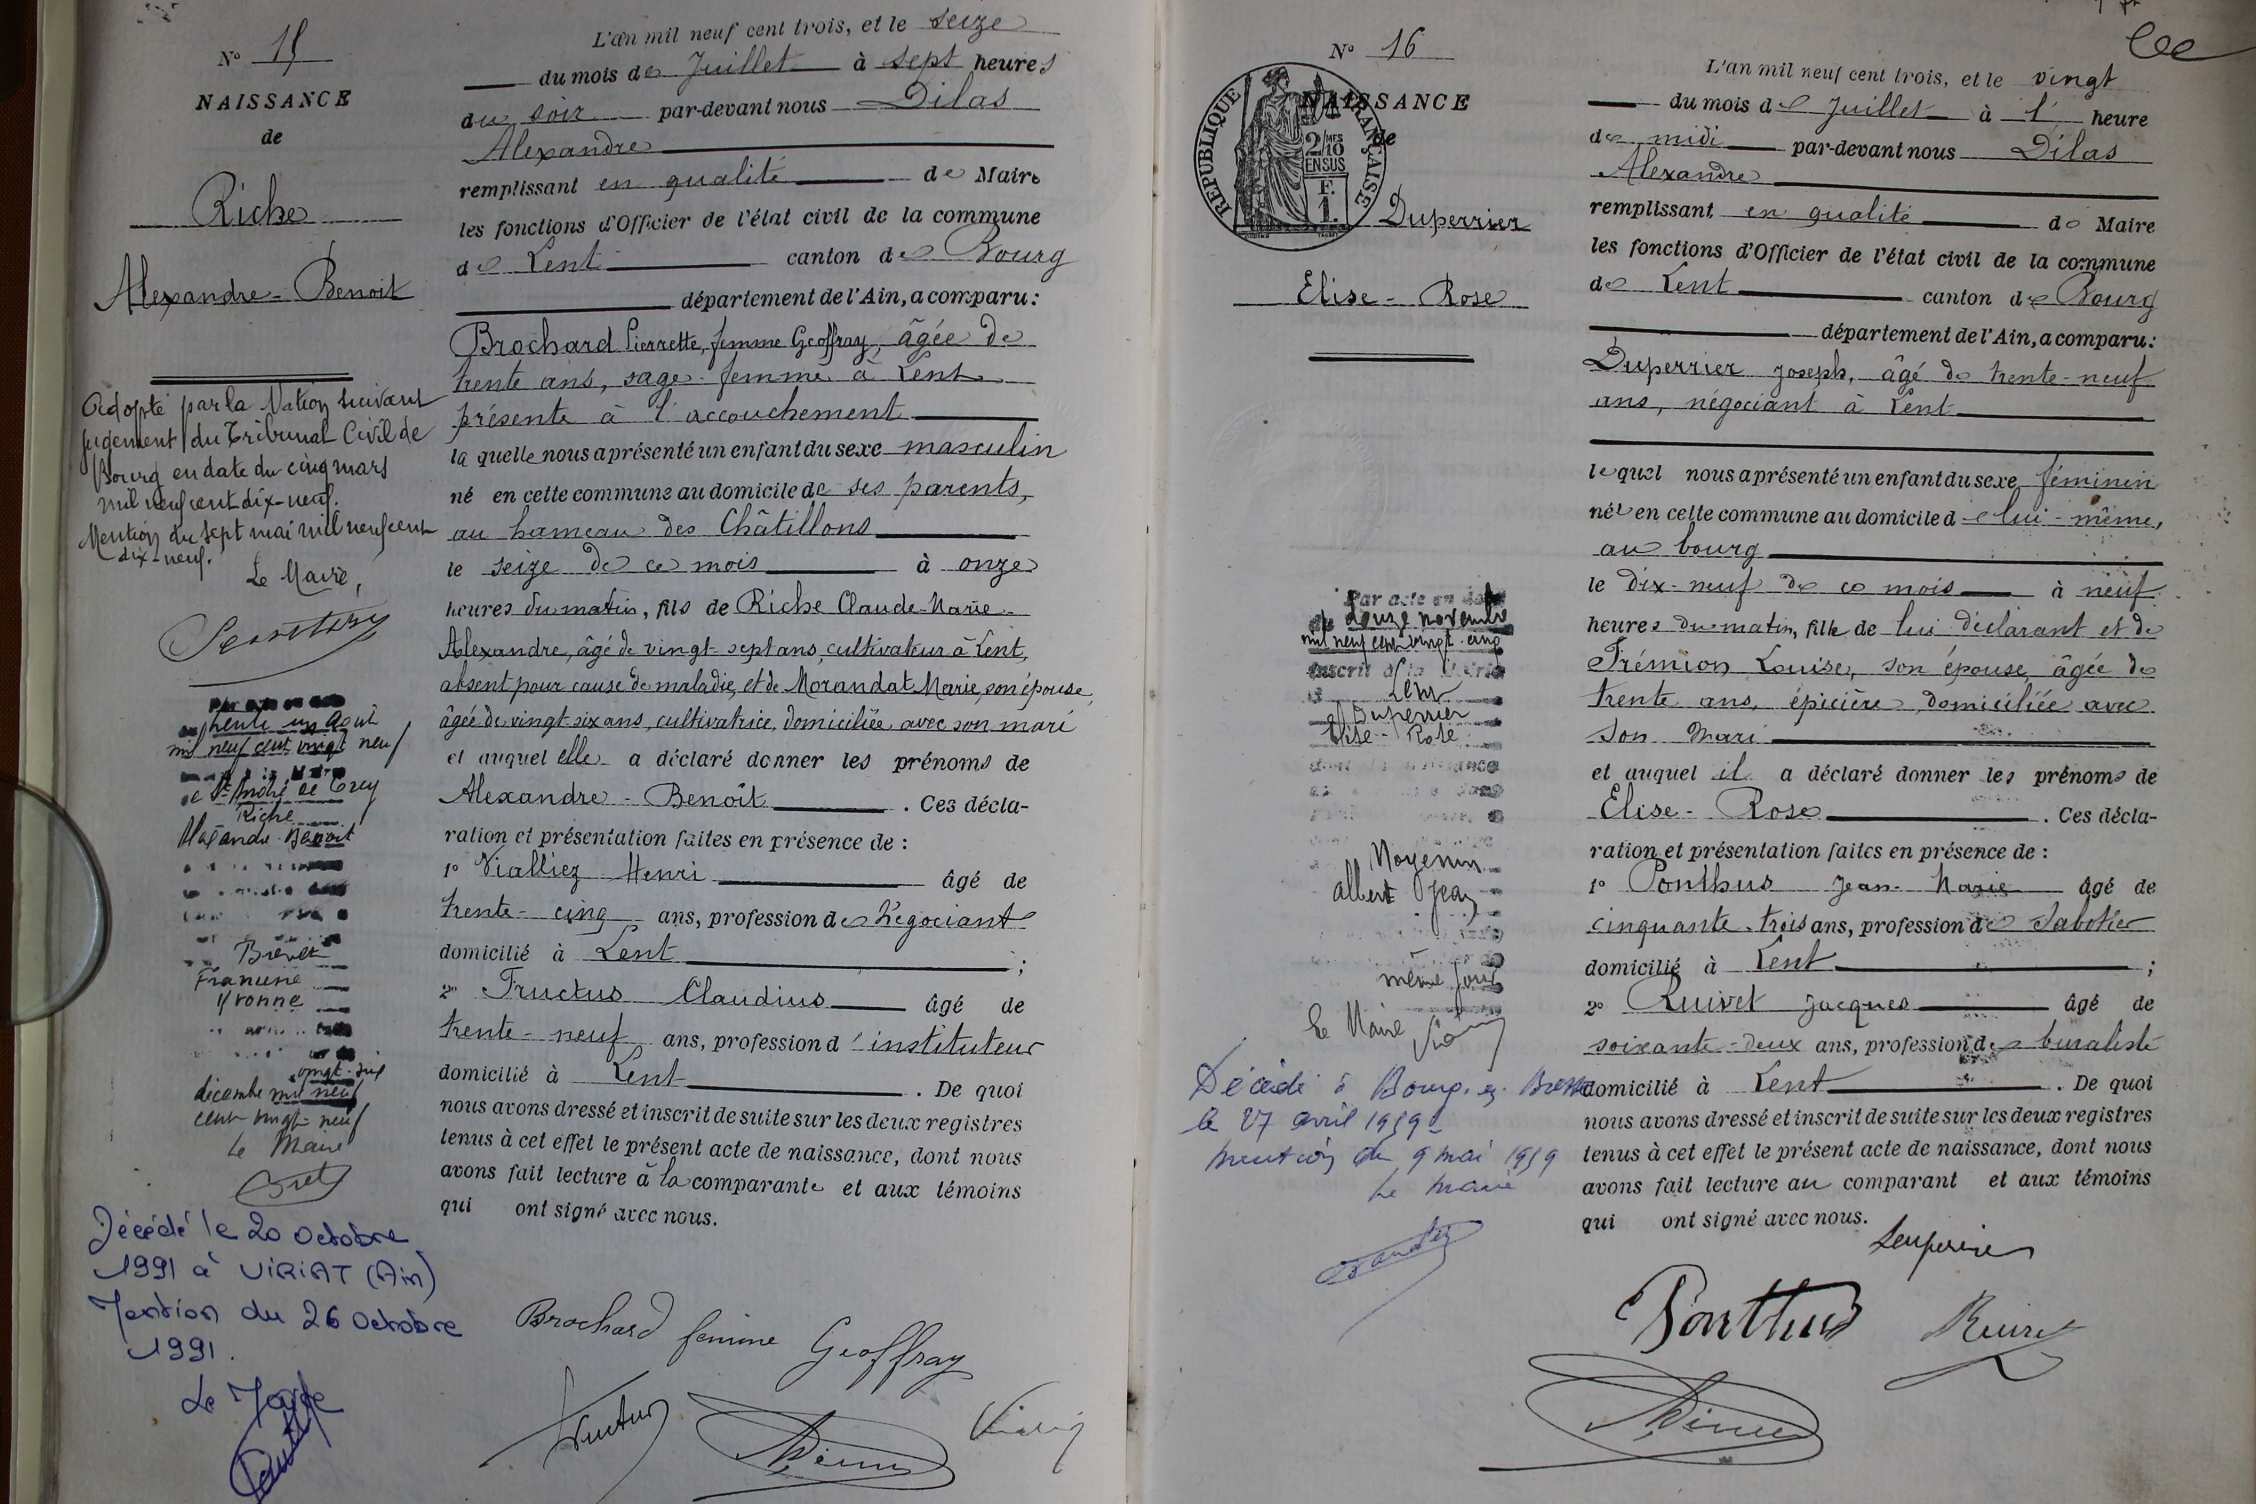 N° 15
NAISSANCE
de
Riche
Alexandre-Benoit
Adopté par la Nation suivant
jugement du Tribunal Civil de
Bourg en date du cinq mars
mil neuf cent dix-neuf.
Mention du sept mai mil neuf cent
dix-neuf.
Le Maire,
trente un Août
mil neuf cent vingt neuf
St André de Corcy
Riche
Alexandre-Benoit
Francine
Yvonne
vingt-six
décembre mil neuf
cent vingt neuf
Le Maire
Décédé le 20 octobre
1991 à VIRIAT (Ain)
Mention du 26 octobre
1991.
Le Maire
L'an mil neuf cent trois, et le seize
du mois de Juillet à sept heures
du soir par-devant nous Dilas
Alexandre
remplissant en qualité de Maire
les fonctions d'Officier de l'état civil de la commune
de Lent canton de Bourg
département de l'Ain, a comparu :
Brochard Pierrette, femme Geoffray, âgée de
trente ans, sage-femme à Lent
présente à l'accouchement
laquelle nous a présenté un enfant du sexe masculin
né en cette commune au domicile de ses parents,
au hameau des Châtillons
le seize de ce mois à onze
heures du matin, fils de Riche Claude-Marie-
Alexandre, âgé de vingt-sept ans, cultivateur à Lent,
absent pour cause de maladie, et de Morandat Marie, son épouse,
âgée de vingt-six ans, cultivatrice, domiciliée avec son mari
et auquel elle a déclaré donner les prénoms de
Alexandre-Benoît . Ces décla-
ration et présentation faites en présence de :
1° Vialliez Henri âgé de
trente-cinq ans, profession de Négociant
domicilié à Lent ;
2° Fructus Claudius âgé de
trente-neuf ans, profession d'instituteur
domicilié à Lent . De quoi
nous avons dressé et inscrit de suite sur les deux registres
tenus à cet effet le présent acte de naissance, dont nous
avons fait lecture à la comparante et aux témoins
qui ont signé avec nous.
Brochard femme Geoffray
Fructus
N° 16
NAISSANCE
de
RÉPUBLIQUE FRANÇAISE
2/10 MES
EN SUS
F.
1.
Duperrier
Elise-Rose
Par acte en date
du douze novembre
mil neuf cent vingt-cinq
inscrit à la Mairie
Lent
Duperrier
Elise-Rose
Albert Jean
même jour
Le Maire
Décédé à Bourg-en-Bresse
le 27 avril 1959
mention du 9 mai 1959
Le Maire
L'an mil neuf cent trois, et le vingt
du mois de Juillet à 1 heure
de midi par-devant nous Dilas
Alexandre
remplissant en qualité de Maire
les fonctions d'Officier de l'état civil de la commune
de Lent canton de Bourg
département de l'Ain, a comparu :
Duperrier Joseph, âgé de trente-neuf
ans, négociant à Lent
lequel nous a présenté un enfant du sexe féminin
née en cette commune au domicile de lui-même,
au bourg
le dix-neuf de ce mois à neuf
heures du matin, fille de lui déclarant et de
Frémion Louise, son épouse, âgée de
trente ans, épicière, domiciliée avec
son mari
et auquel il a déclaré donner les prénoms de
Elise-Rose . Ces décla-
ration et présentation faites en présence de :
1° Ponthus Jean-Marie âgé de
cinquante-trois ans, profession de Sabotier
domicilié à Lent ;
2° Ruivet Jacques âgé de
soixante-deux ans, profession de buraliste
domicilié à Lent . De quoi
nous avons dressé et inscrit de suite sur les deux registres
tenus à cet effet le présent acte de naissance, dont nous
avons fait lecture au comparant et aux témoins
qui ont signé avec nous.
Duperrier
Ponthus
Ruivet